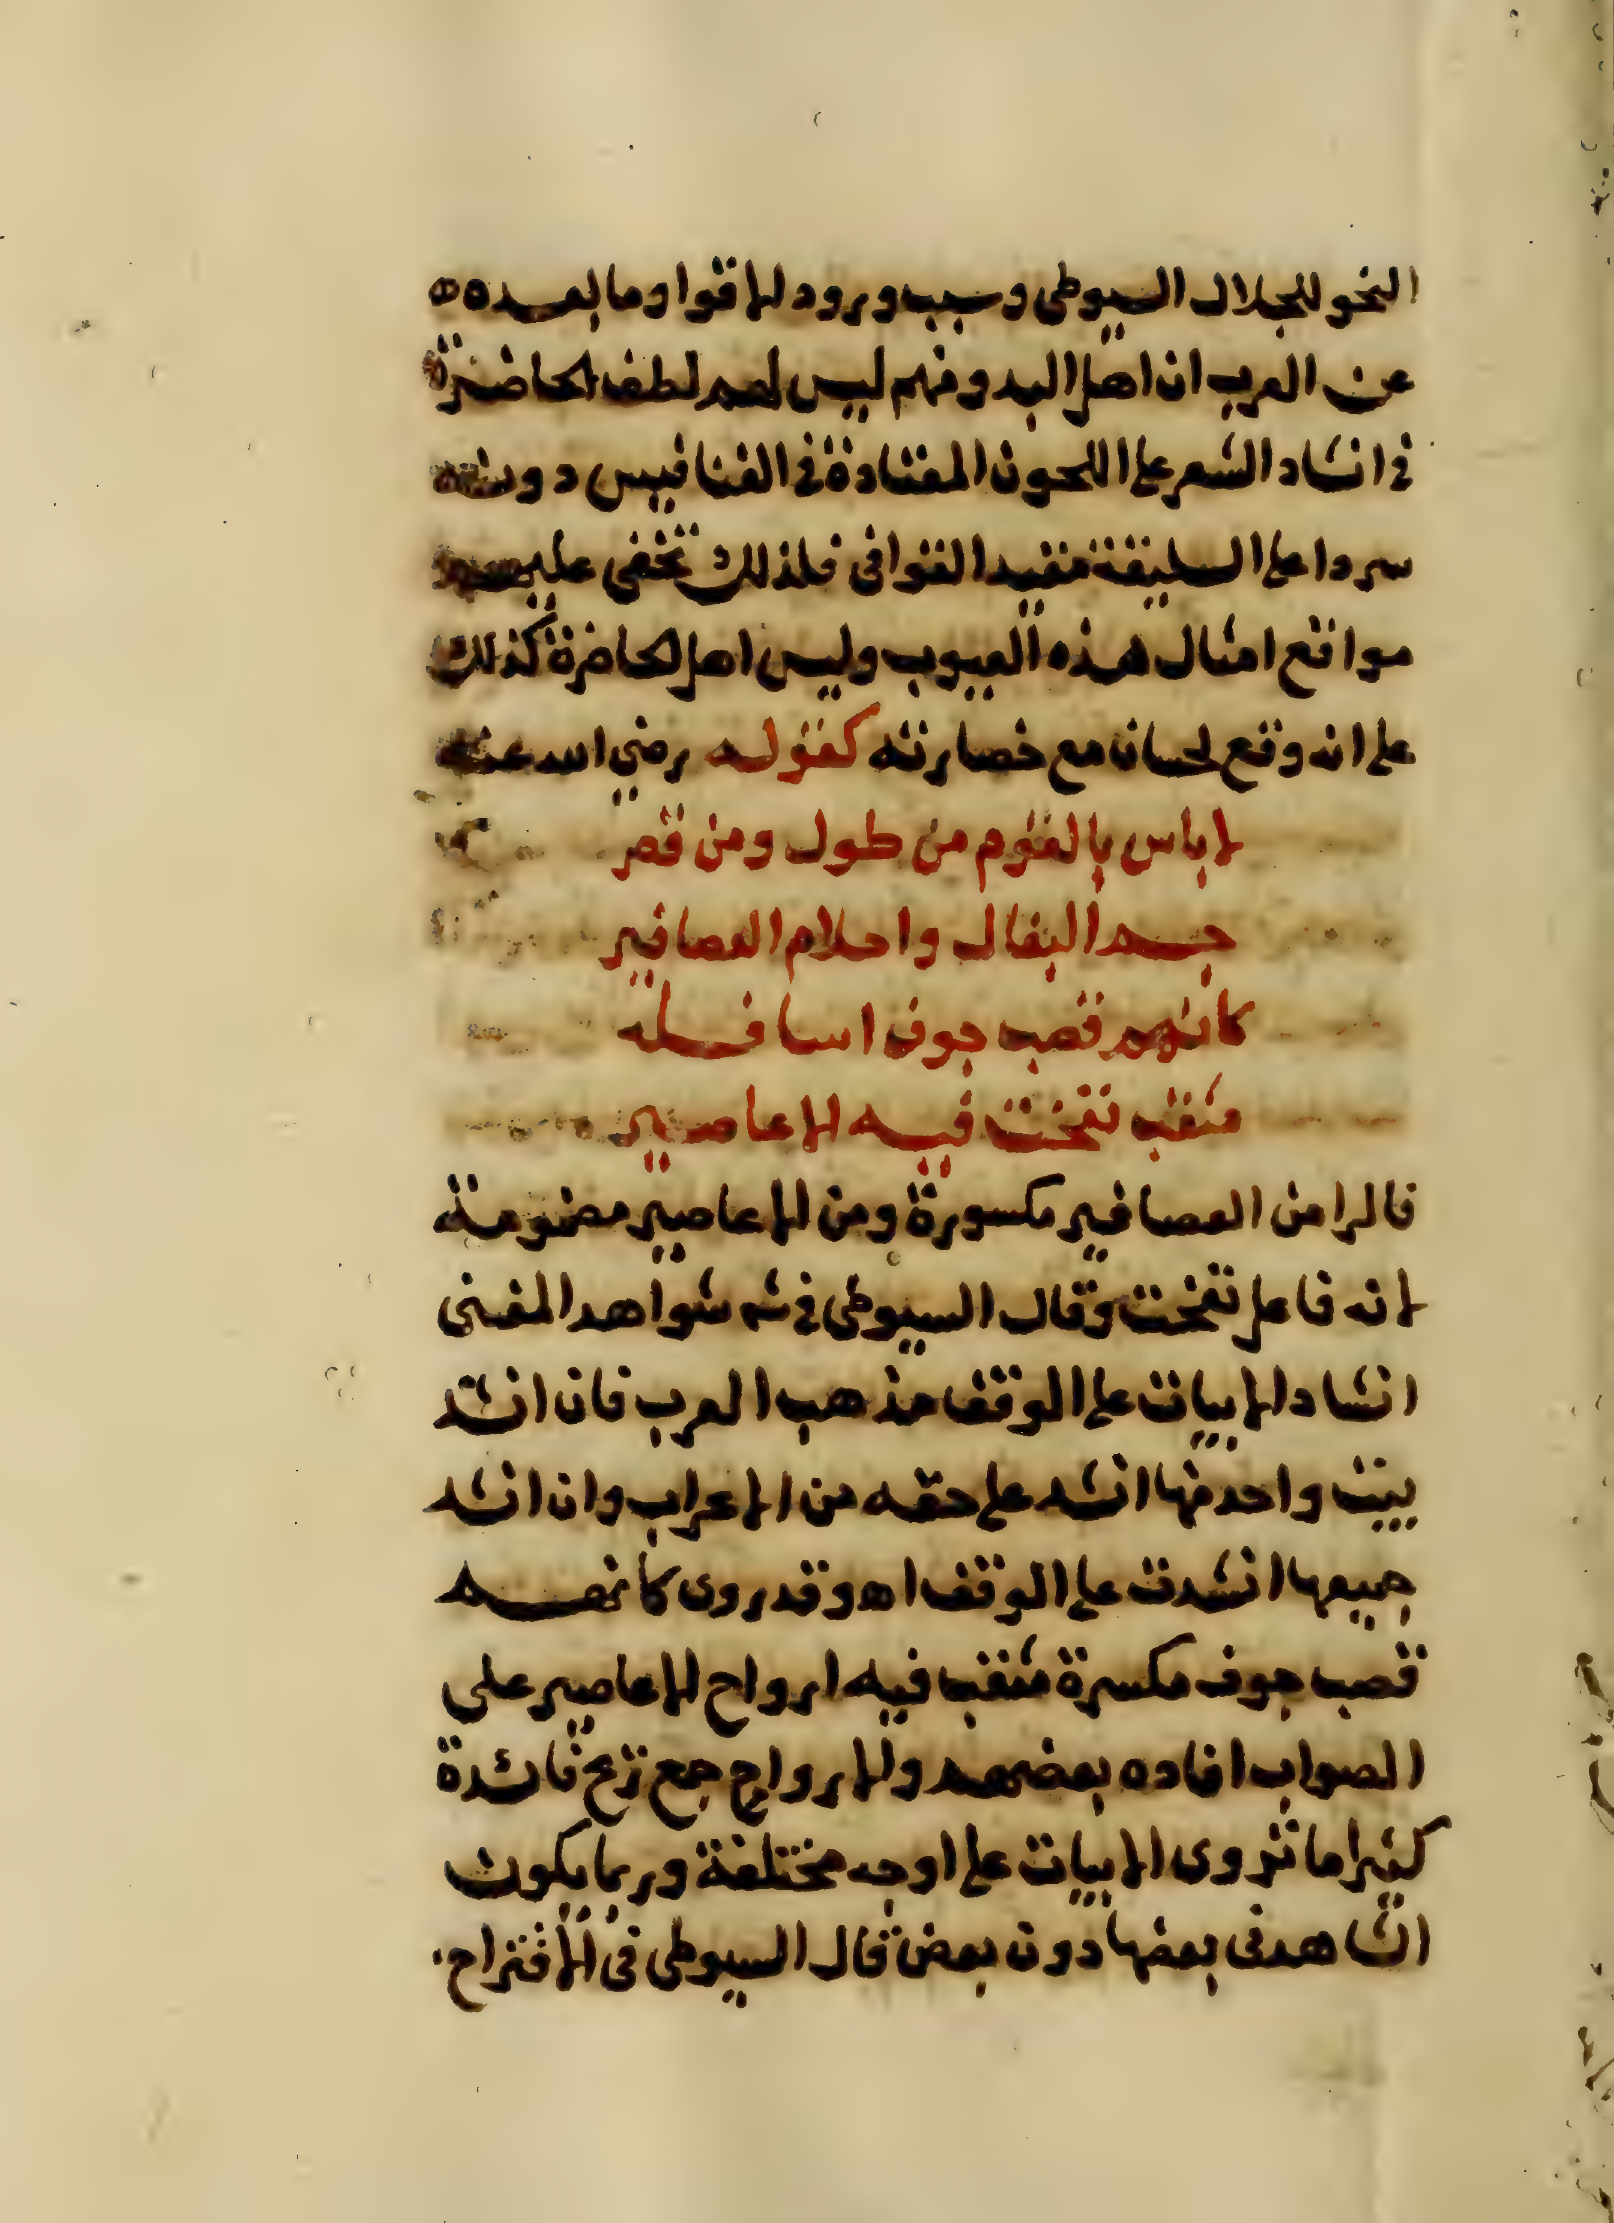 النحو للجلال السيوطى وسبب ورود الاقوا وما بعده
عن العرب ان اهل البدو منهم ليس لهم لطف الحاضرة
فى انشاد الشعر على اللحون المعتادة فى الغنا فيس دونه
سردا على السليقة مقيد القوافى فلذلك تخفى عليهم
مواقع امثال هذه العيوب وليس اهل الحاضرة كذلك
على انه وقع لحسان مع حضارته كقوله رضي الله عنه
لا باس بالقوم من طول ومن قصر
جسم البغال واحلام العصافير
كانهم قصب جوف اسافله
مثقب نفخت فيه الاعاصير
فالرا من العصافير مكسورة ومن الاعاصير مضمومة
لانه فاعل نفخت وقال السيوطى فى شه شواهد المغنى
انشاد الابيات على الوقف مذهب العرب فان انشد
بيت واحد منها انشد على حقه من الاعراب وان انشد
جميعها انشدت على الوقف اه وقد روى كانهم
قصب جوف مكسرة مثقب فيه ارواح الاعاصير على
الصواب افاده بعضهم والارواح جمع ريح فائدة
كثيرا ما تروى الابيات على اوجه مختلفة وربما يكون
الشاهد فى بعضها دون بعض قال السيوطى فى الاقتراح